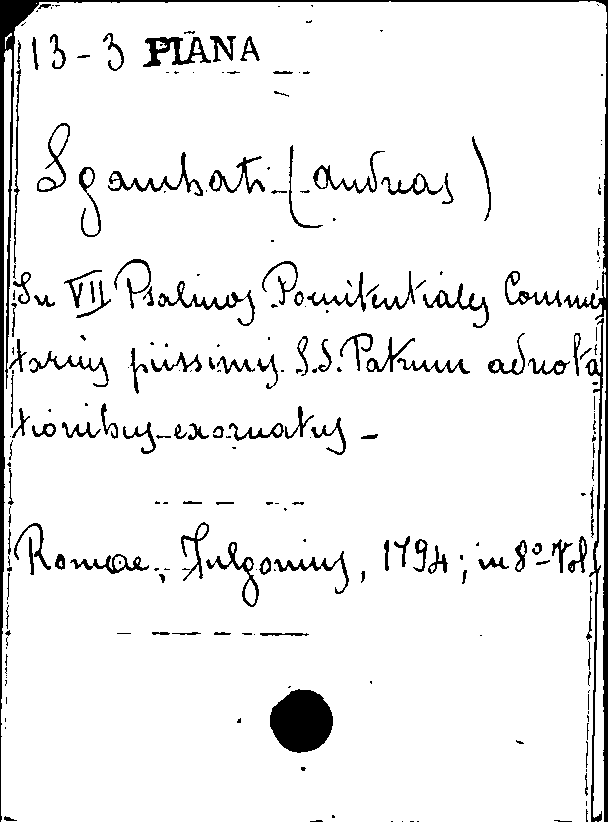 13-3 PIANA
Sgambati (Andreas)
In VII Psalmos Poenitentiales Commen
tarius piissimis S.S. Patrum adnota
tionibus exornatus -
Romae, Fulgonius, 1794; in 8º Vol 1